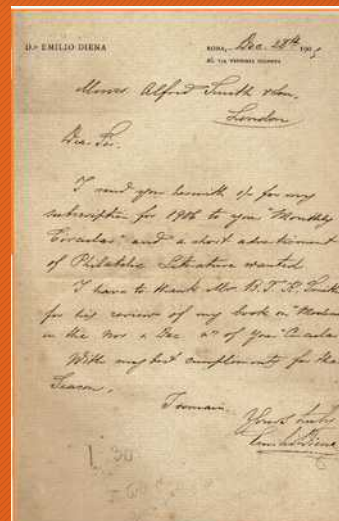 Dr. EMILIO DIENA
ROMA, Dec. 28th 190
Messrs. Alfred Smith & Son.
London
Dear Sir.
I send you herewith 1/- for my
subscription for 1906 to your "Monthly
Circular" and a short advertisement
of Philatelic Literature wanted
I have to thank Mr. B. T. K. Smith
for his review of my book on "Modena"
in the Nov & Dec. nos of your Circular
With my best compliments for the
Season,
I remain
Yours truly
Emilio Diena